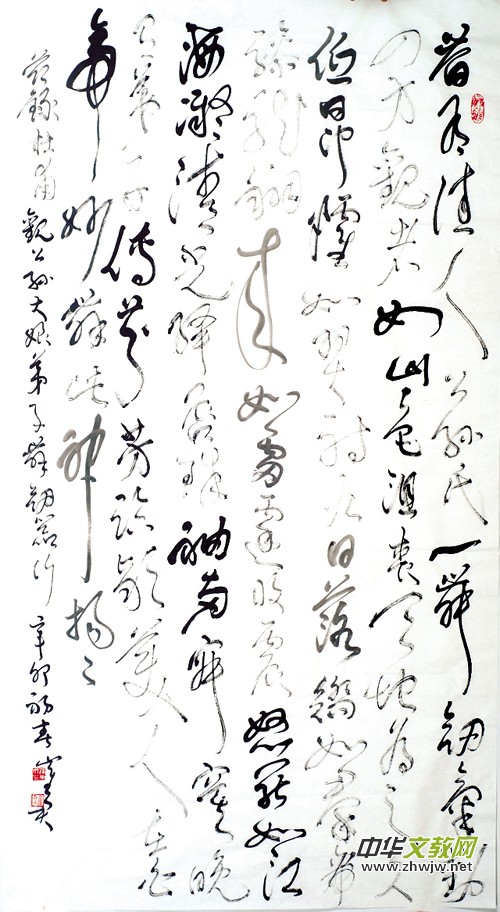 昔有佳人公孫氏一舞劍氣動
四方觀者如山色沮喪天地為之久
低昂㸌如羿射九日落矯如群帝
驂龍翔來如雷霆收震怒罷如江
海凝清光絳唇珠袖兩寂寞晚
有弟子傳芬芳臨潁美人在白
帝妙舞此神揚々
節錄杜甫觀公孫大娘弟子舞劍器行 辛卯初春
中华文教网
www.zhwjw.net